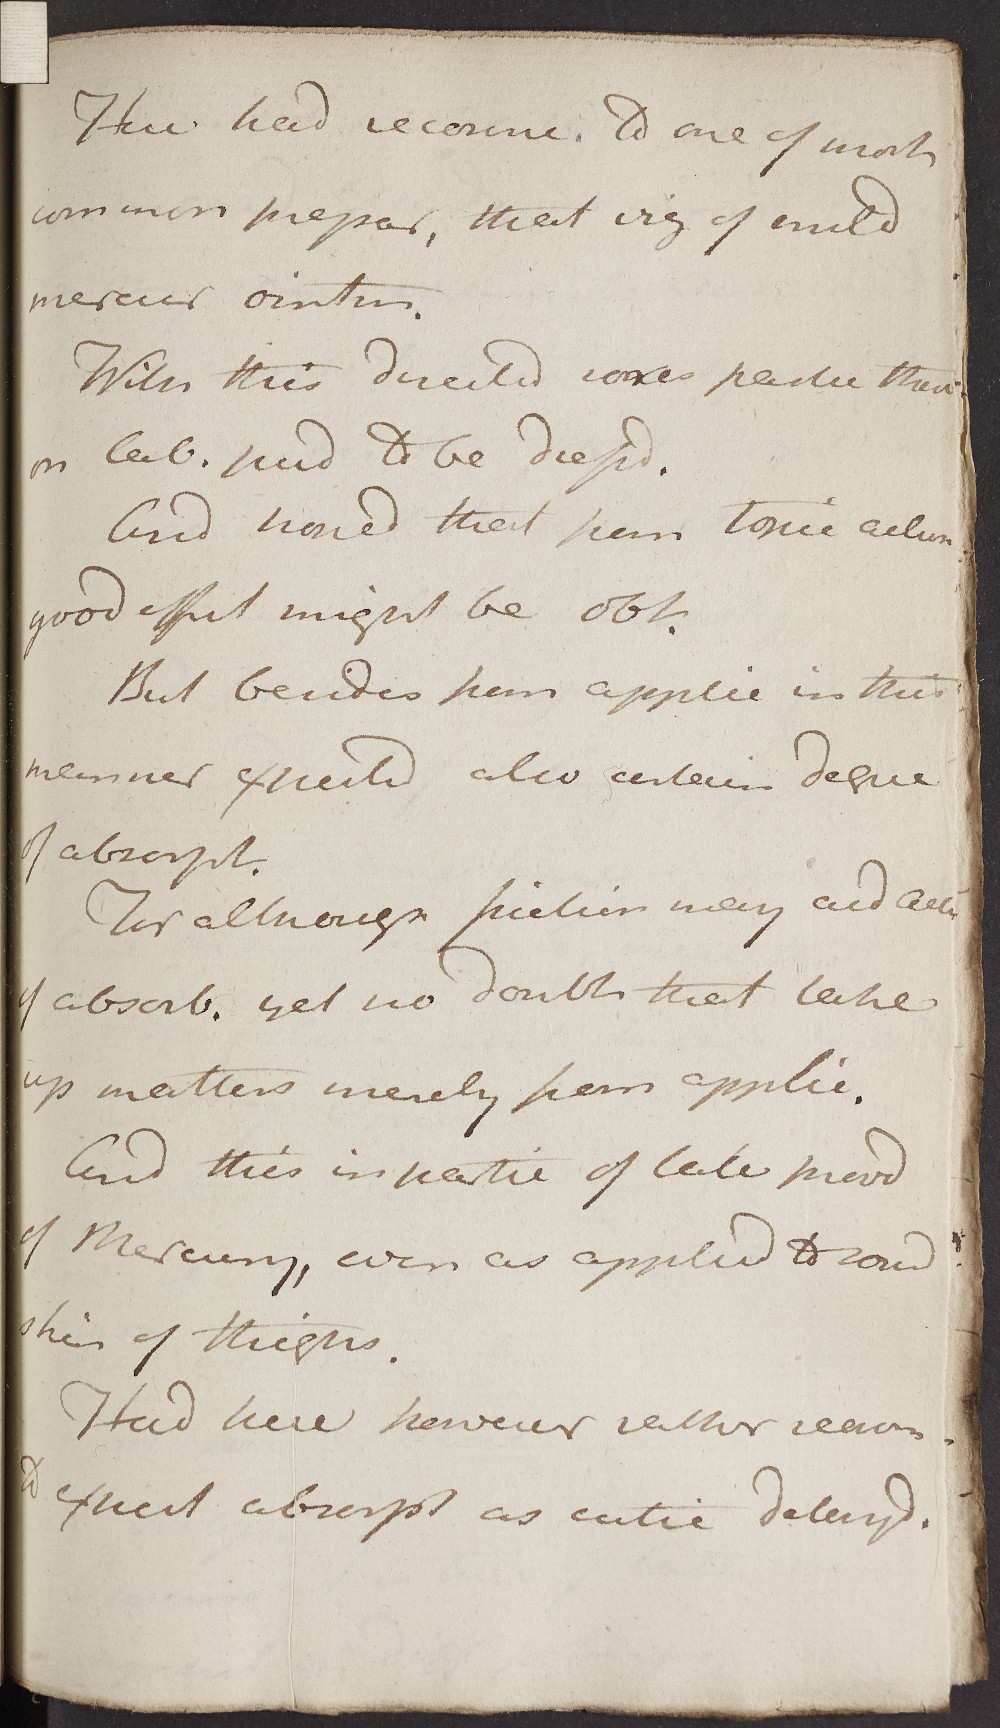 Here had recourse. to one of most
common prepar, that viz of mild
mercur ointm.
With this directed sores partic those
on lab. pud to be dressd.
And hoped that from topic action
good effect might be obt.
But besides from applic in this
manner expected also certain degree
of absorpt.
For although friction may aid actn
of absorb. yet no doubt that take
up matters merely from applic.
And this in partic of late provd
of Mercury, even as applied to sound
skin of thighs.
Had here however rather reason.
to expect absorpt as cutic destroyd.